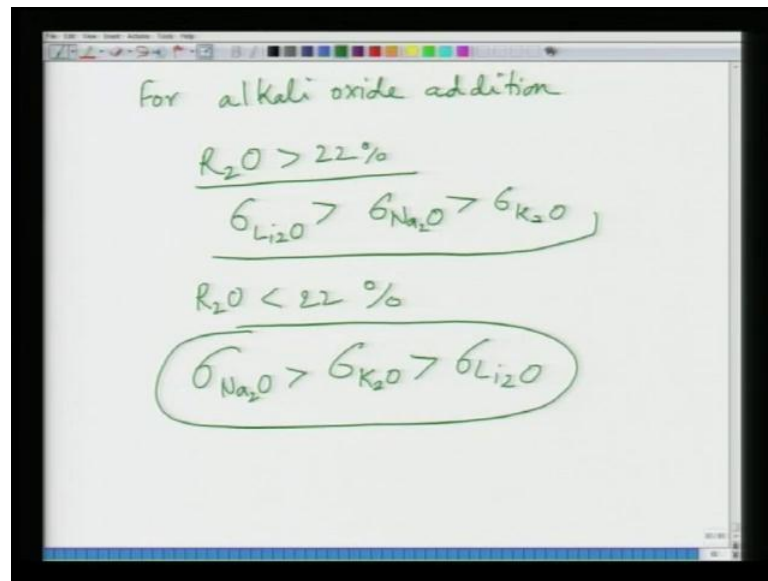 For alkali oxide addition
R₂O > 22%
σ_Li₂O > σ_Na₂O > σ_K₂O
R₂O < 22 %
σ_Na₂O > σ_K₂O > σ_Li₂O